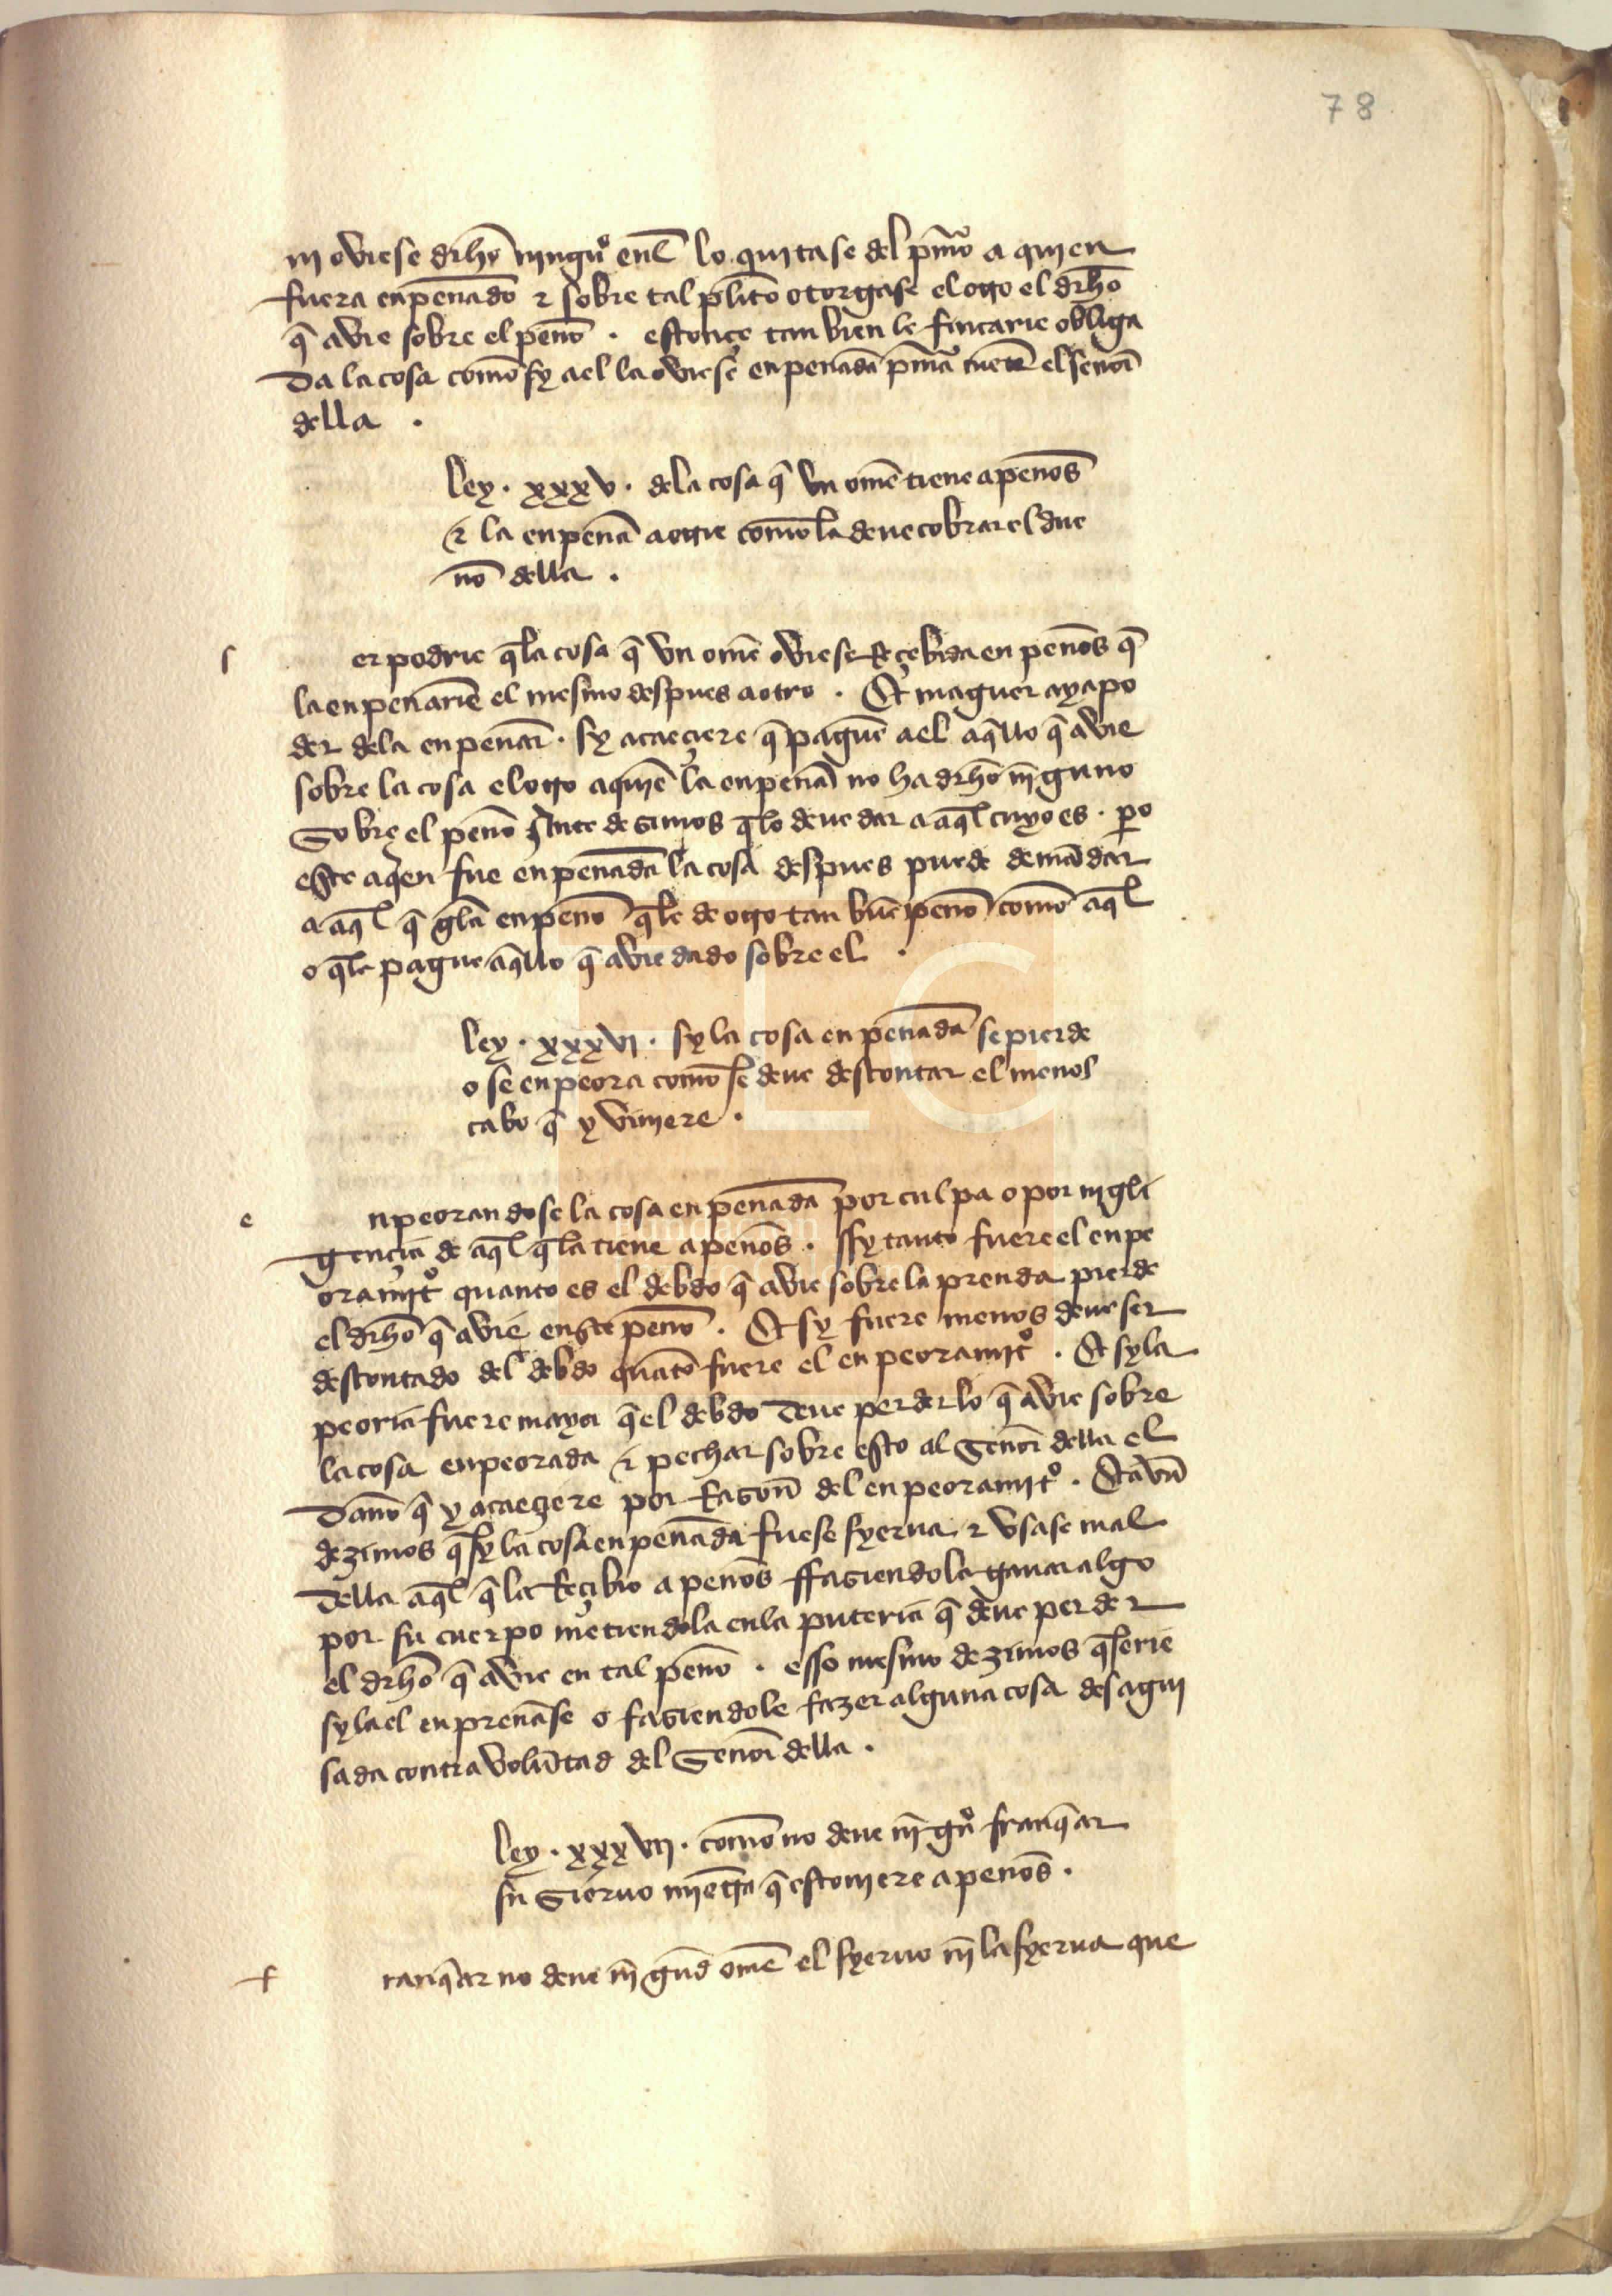 78
ni oviese drho ningũo enl lo quitase del pmo a quien
fuera enpeñado τ sobre tal plito otorgase el otro el drho
q̃ avie sobre el peño . estonçe tan bien le fincarie obliga
da la cosa como sy a el la oviese enpeñada pmamete el señor
della .
ley . xxxv . dela cosa q̃ vn ome tiene a peños
τ la enpeña a otre como la deue cobrar el due
ño della .
s er podrie q̃la cosa q̃ vn ome oviese Reçebida en peños q̃
la enpeñarie el mesmo despues a otro . Et maguer aya po
der dela enpeñar . sy acaeçiere q̃ paguē a el aq̃llo q̃ avie
sobre la cosa el otro a quiē la enpeña no ha drho nīguno
Sobre el peño Ante desimos q̃lo deue dar a aq̃l cuyo es . po
este a qen fue enpeñada la cosa despues puede demādar
a aq̃l q̃ gela enpeño q̃le de otro tan buē peño como aq̃l
o q̃le pague aq̃llo q̃ avie dado sobre el .
ley . xxxvi . sy la cosa enpeñada se pierde
o se enpeora como se deue descontar el menos
cabo q̃ y viniere .
e npeorandose la cosa enpeñada por culpa o por nigli
gençia de aq̃l q̃la tiene a peños . sy tanto fuere el enpe
oramīto quanto es el debdo q̃ avie sobre la prenda pierde
el drho q̃ avie en este peño . Et sy fuere menos deue ser
descontado del debdo quāto fuere el enpeoramīto . Et sy la
peoria fuere mayor q̃ el debdo deue perder lo q̃ avie sobre
la cosa enpeorada τ pechar sobre esto al Señor della el
daño q̃ y acaeçiere por Rason del enpeoramīto . Et avn
dezimos q̃ sy la cosa enpeñada fuese syerua τ vsase mal
della aq̃l q̃ la Reçibio a peños ffasiendola ganar algo
por su cuerpo metiendola en la puteria q̃ deue perder
el drho q̃ avie en tal peño . esso mesmo dezimos q̃ serie
sy la el enpreñase o fasiendole fazer alguna cosa desagui
sada contra volūtad del Señor della .
ley . xxxvii . como no deue nīgũo franq̃ar
su Sieruo miētra q̃ estouiere a peños .
f ranq̃ar no deue nīgud ome el syeruo nī la syerua que